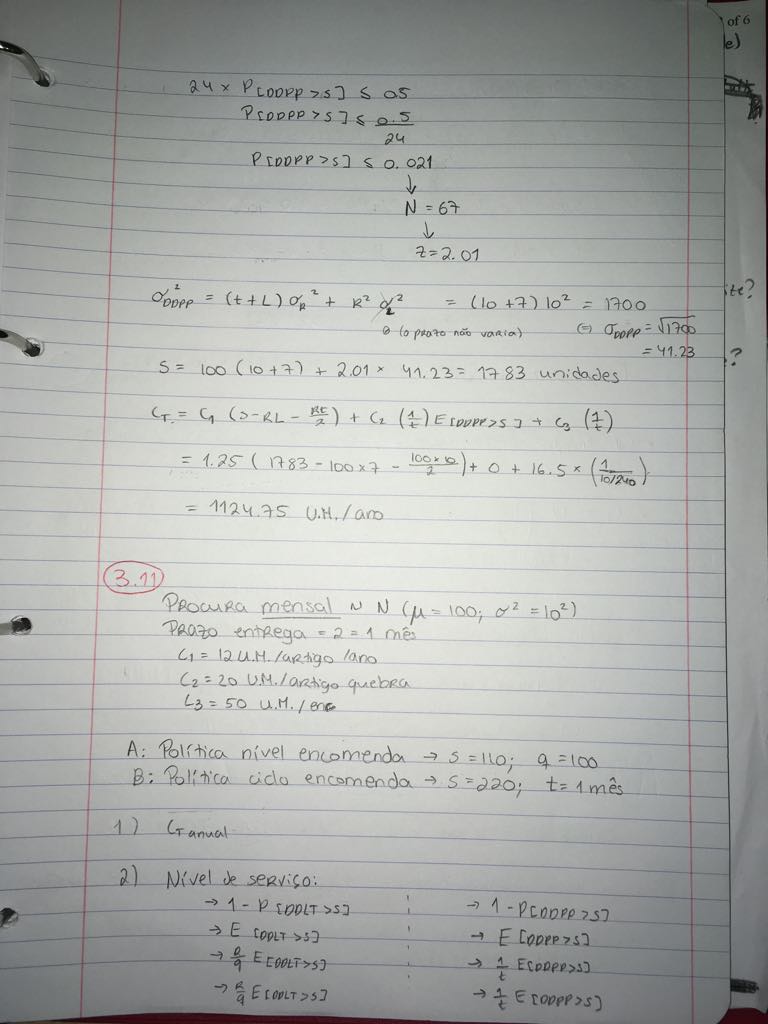 of 6
e)
24 × P[DDPP>S] ≤ 05
P[DDPP>S] ≤ 0.5/24
P[DDPP>S] ≤ 0.021
↓
N = 67
↓
z = 2.01
σ²DDPP = (t+L) σR² + R² σL² = (10+7) 10² = 1700
0 (o prazo não varia) (=) σDDPP = √1700
= 41.23
S = 100 (10+7) + 2.01 × 41.23 = 1783 unidades
CT = C1 (S-RL - Rt/2) + C2 (1/t) E[DDPP>S] + C3 (1/t)
= 1.25 (1783 - 100×7 - 100×10/2) + 0 + 16.5 × (1/10/240)
= 1124.75 U.M./ano
3.11
Procura mensal ~ N (μ=100; σ²=10²)
Prazo entrega = 2 = 1 mês
C1 = 12 U.M./artigo/ano
C2 = 20 U.M./artigo quebra
C3 = 50 U.M./enc
A: Política nível encomenda → S=110; q=100
B: Política ciclo encomenda → S=220; t=1 mês
1) CT anual
2) Nível de serviço:
→ 1-P[DDLT>S] → 1-P[DDPP>S]
→ E[DDLT>S] → E[DDPP>S]
→ R/q E[DDLT>S] → 1/t E[DDPP>S]
→ R/q E[DDLT>S] → 1/t E[DDPP>S]
ite?
?